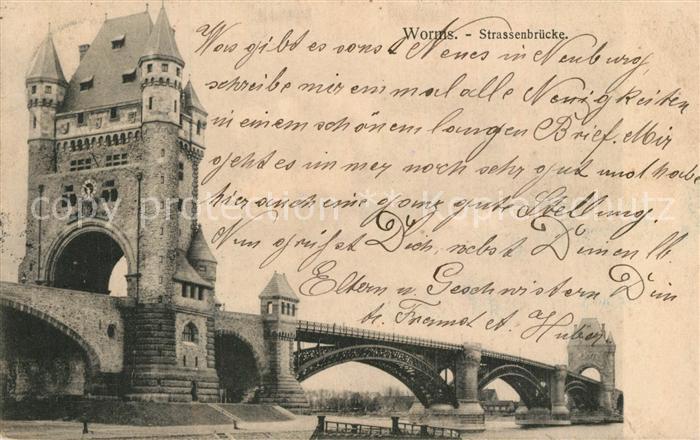 Worms. - Strassenbrücke.
Was gibt es sonst Neues in Neuburg,
schreibe mir einmal alle Neuigkeiten
in einem schönem langen Brief. Mir
geht es immer noch sehr gut und habe
hier auch eine ganz gute Stellung.
Nun grüßt Dich, nebst Deinen lb.
Eltern u. Geschwistern Dein
tr. Freund
copy protection ** Kopierschutz